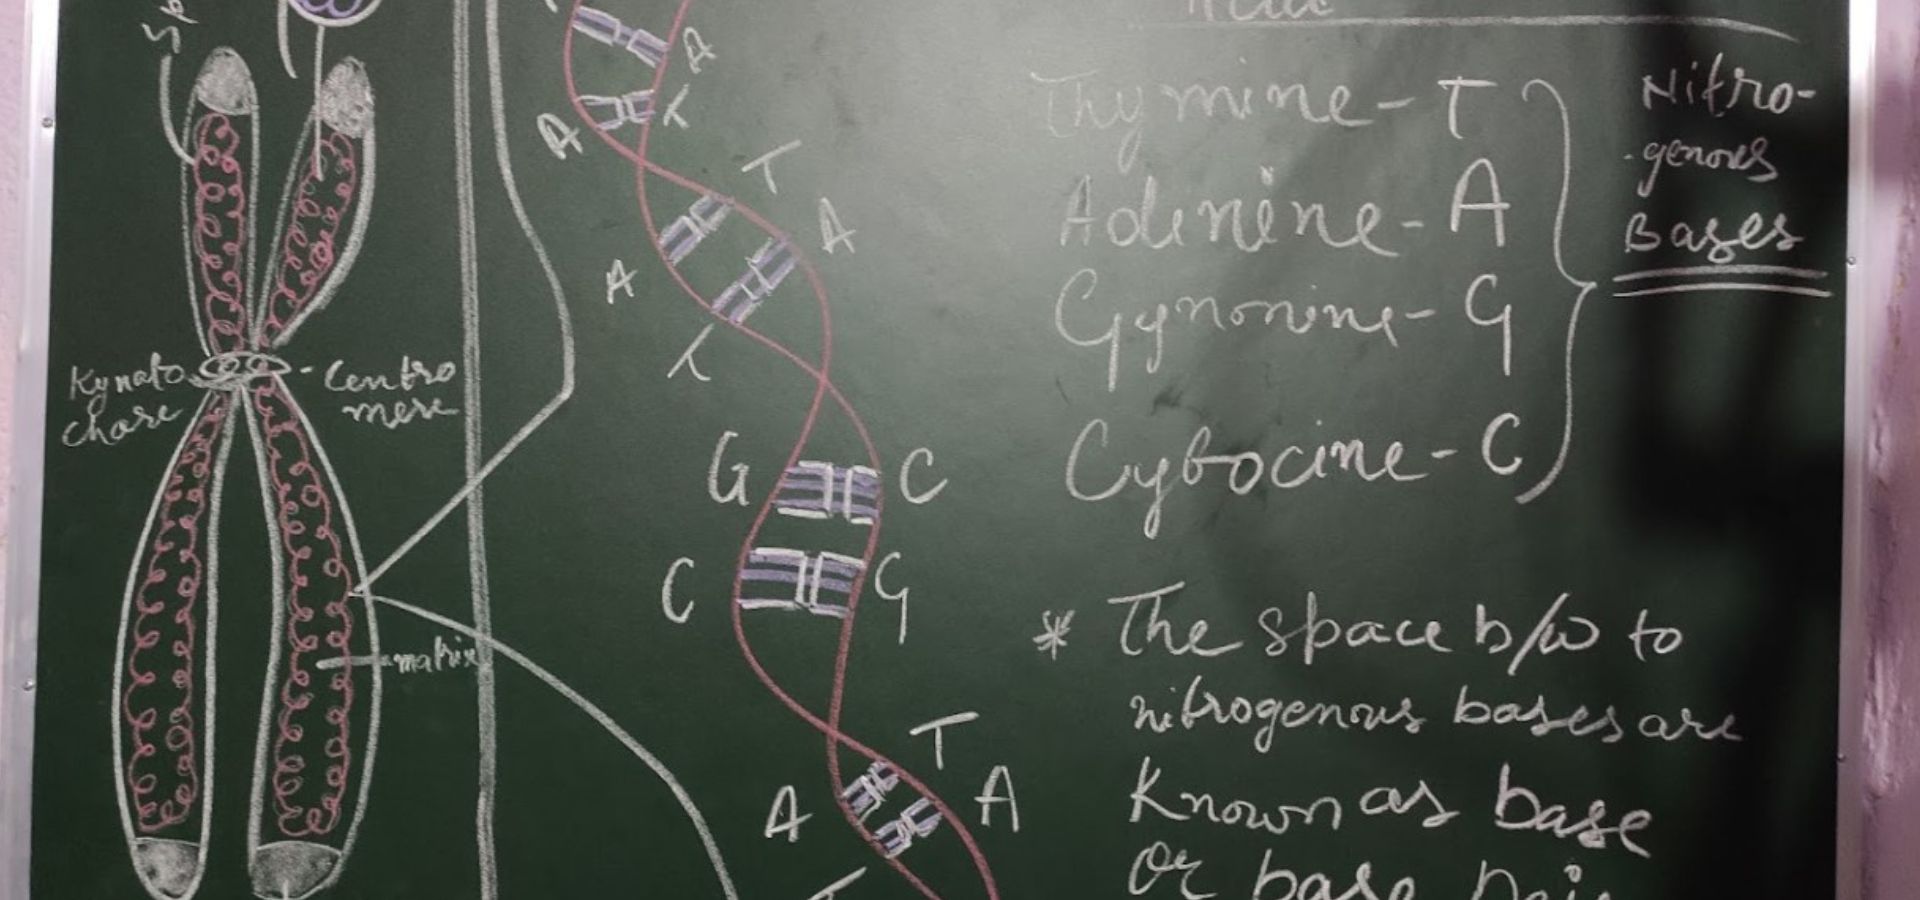 Thymine - T
Adinine - A
Gynonine - G
Cybocine - C
Nitro-
-genous
Bases
* The space b/w to
nitrogenous bases are
Known as base
or base
Kynato
chore
- Centro
mere
matrix
A
A
T
T
A
A
T
G
C
C
G
T
A
A
T